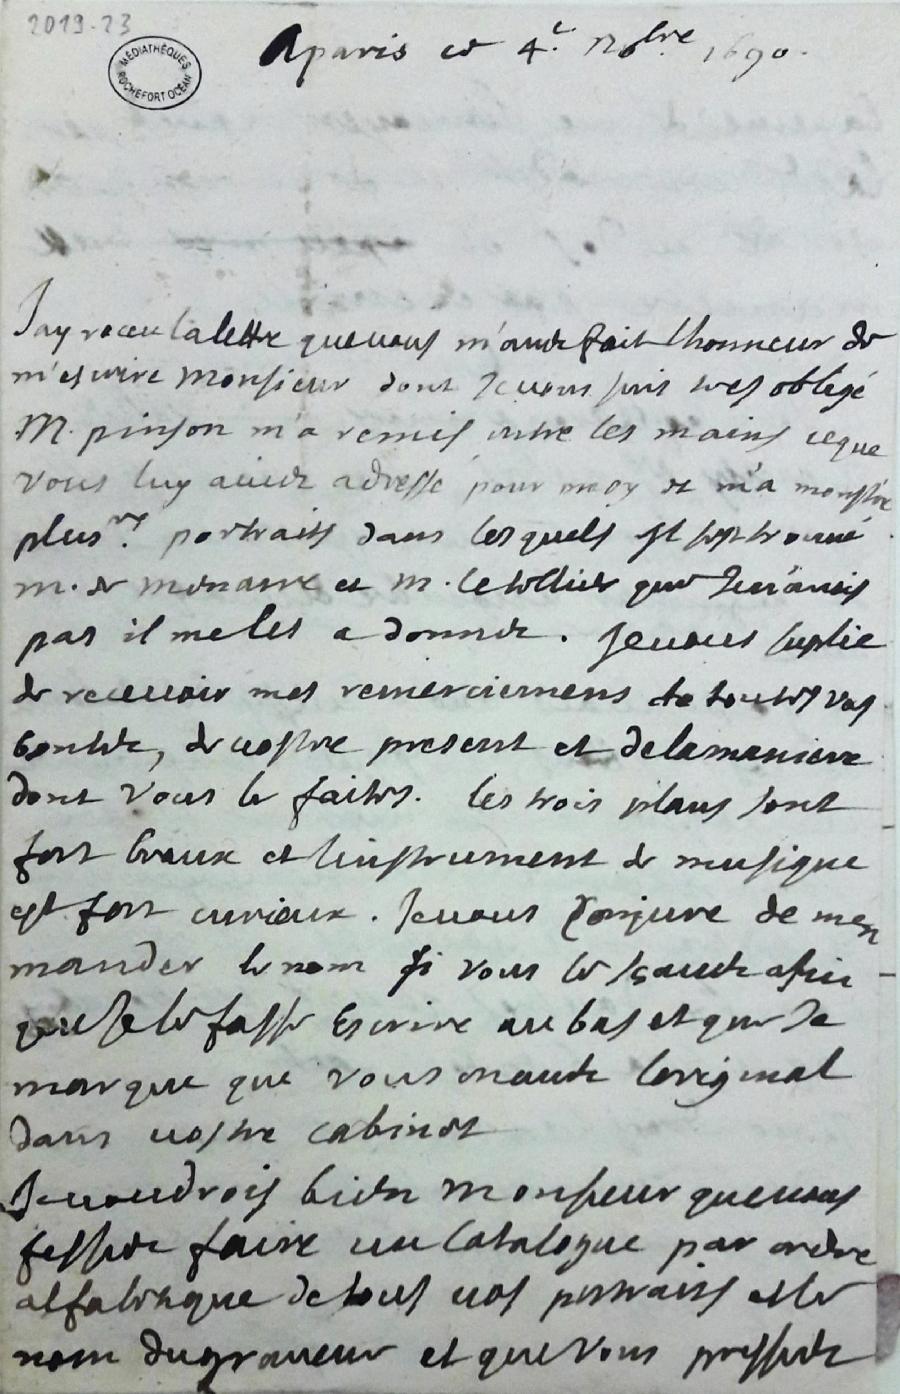 2019-23
MÉDIATHÈQUES
ROCHEFORT OCÉAN
A paris ce 4e. Nobre. 1690.
J'ay receu la lettre que vous m'avez fait l'honneur de
m'escrire Monsieur dont Je vous suis tres obligé
M. pinson m'a remis entre les mains ce que
vous luy aviez adressé pour moy et m'a monstré
plusrs. portraits dans lesquels Il s'est trouvé
m. de et m. le tellier que Je n'avois
pas il me les a donnez. Je vous suplie
de recevoir mes remerciemens de toutes vos
bontez, de vostre present et de la maniere
dont vous le faites. les trois plans sont
fort beaux et l'instrument de musique
est fort curieux. Je vous conjure de m'en
mander le nom si vous le sçavez afin
que Je le fasse Escrire au bas et que Je
marque que vous en avez l'original
dans vostre cabinet
Je voudrois bien Monsieur que vous
fissiez faire un Catalogue par ordre
alfabetique de tous vos portraits et le
nom du graveur et que vous